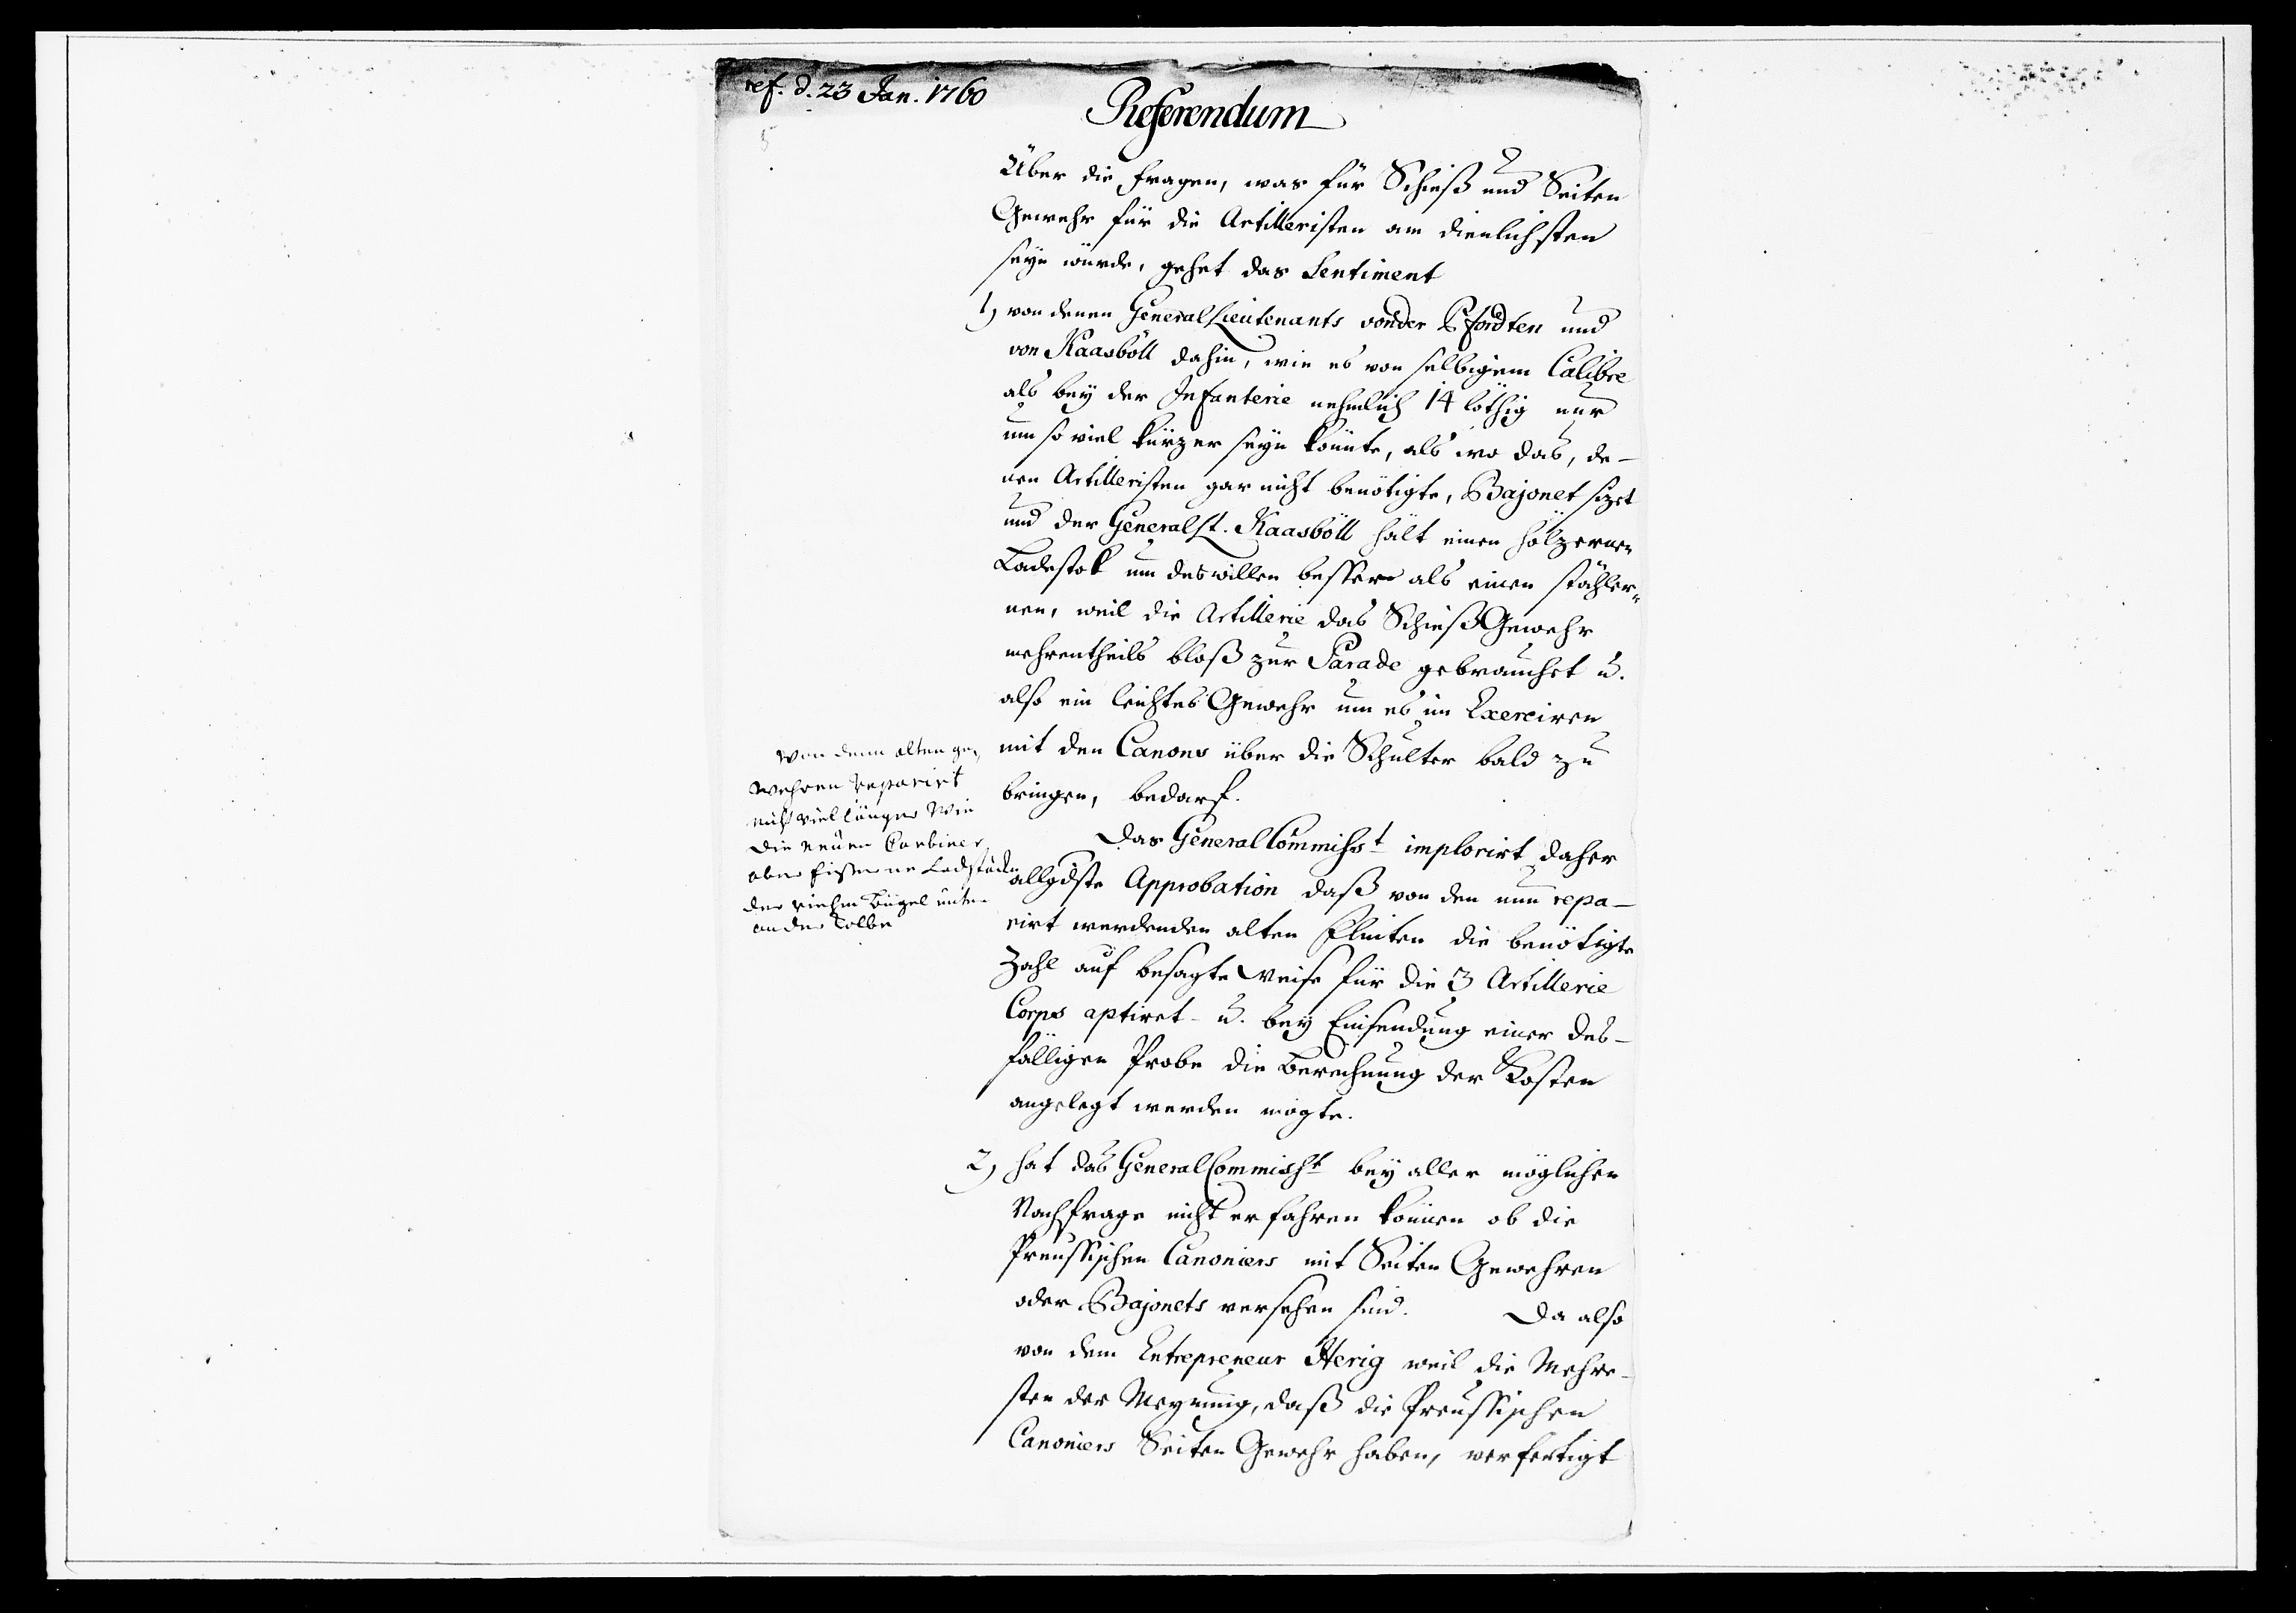 ref. d. 23 Jan. 1760
Referendum
Über die fragen, was für Schieß und Seiten
Gewehr für die Artilleristen am dienlichsten
seyn würde, gehet das Sentiment
1) von denen General Lieutenants von der Pfordten und
von Kaasböll dahin, wie es von selbigem Calibre
als bey der Infanterie nehmlich 14 löthig nur
um so viel kürzer seyn könnte, als wo das, de-
nen Artilleristen gar nicht benötigte, Bajonet sizet
und der General Lt. Kaasböll hält einen hölzernen
Ladestok um deswillen besser als einen stähler-
nen, weil die Artillerie das Schieß Gewehr
mehrentheils bloß zur Parade gebrauchet u.
also ein leichtes Gewehr um es im Exerciren
mit den Canons über die Schulter bald zu
bringen, bedarf.
Das General Commisst implorirt daher
allgdste Approbation daß von den nun repa-
rirt werdenden alten Flinten die benötigte
Zahl auf besagte Weise für die 3 Artillerie
Corps aptiret- u. bey Einsendung einer des-
fälligen Probe die Berechnung der Kosten
angelegt werden mögte.
Von denn alten ge-
wehren reparirt
nicht viel länger Wie
die neuen Carbiner
aber Eiserne Ladstöcke
der riehm Bügel unten
an der Kolbe
2) hat das General Commisst bey aller möglichen
Nachfrage nicht erfahren können ob die
Preussischen Canoniers mit Seiten Gewehren
oder Bajonets versehen sind. Da also
von dem Entrepreneur Herig weil die Mehre-
sten der Meynung, daß die Preussischen
Canoniers Seiten Gewehr haben, verfertigt